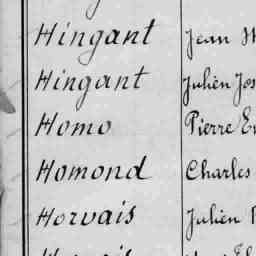 Hingant Jean
Hingant Julien Jos
Homo Pierre
Homond Charles
Horvais Julien